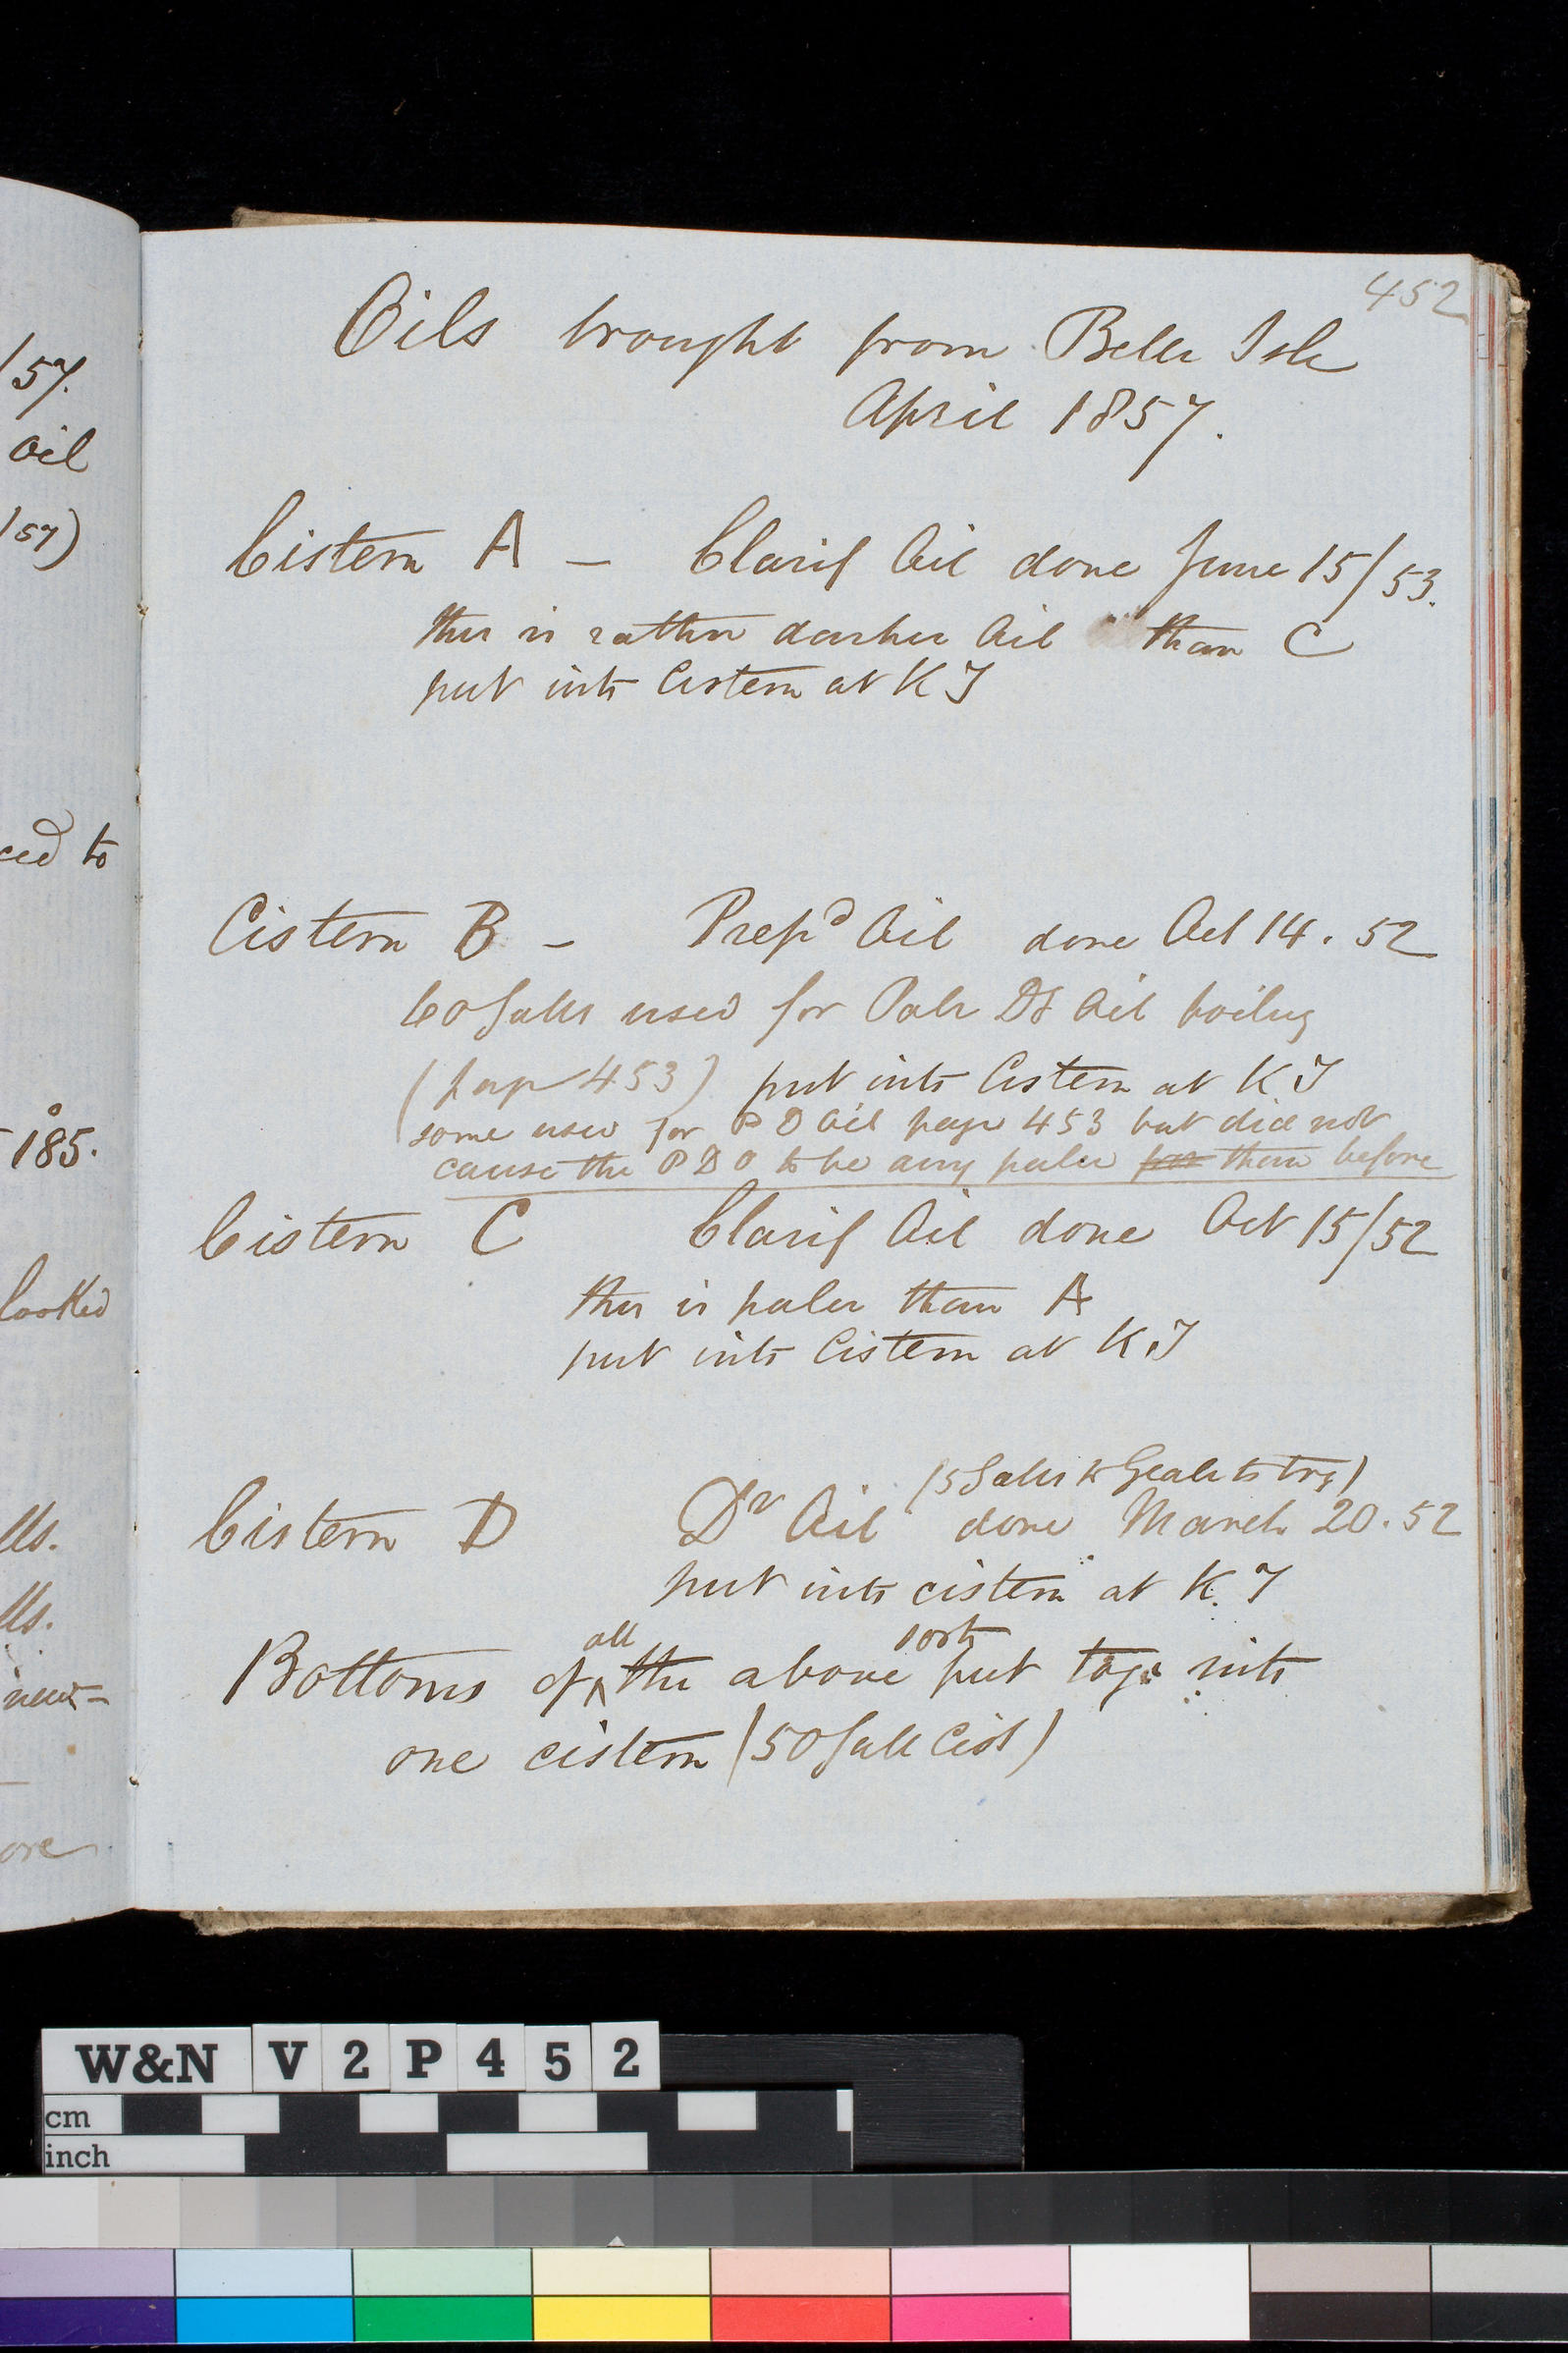 /57.
oil
/57)
ced to
185.
looked
lls.
lls.
new-
ore
452
Oils brought from Belle Isle
April 1857.
Cistern A - Clarif Oil done June 15/53.
this is rather darker Oil than C
put into Cistern at K T
Cistern B - Prepd Oil done Oct 14. 52
60 Galls used for Pale Dg Oil boiling
(page 453) put into Cistern at K T
some used for P D Oil page 453 but did not
cause the P D O to be any paler than before
Cistern C Clarif Oil done Oct 15/52
this is paler than A
put into Cistern at K.T
(5 Galls to Geale to try)
Cistern D Dr Oil done March 20. 52
put into cistern at K. T
Bottoms of all the above sorts put toge into
one cistern (50 Gall Cist)
W&N V 2 P 4 5 2
cm
inch